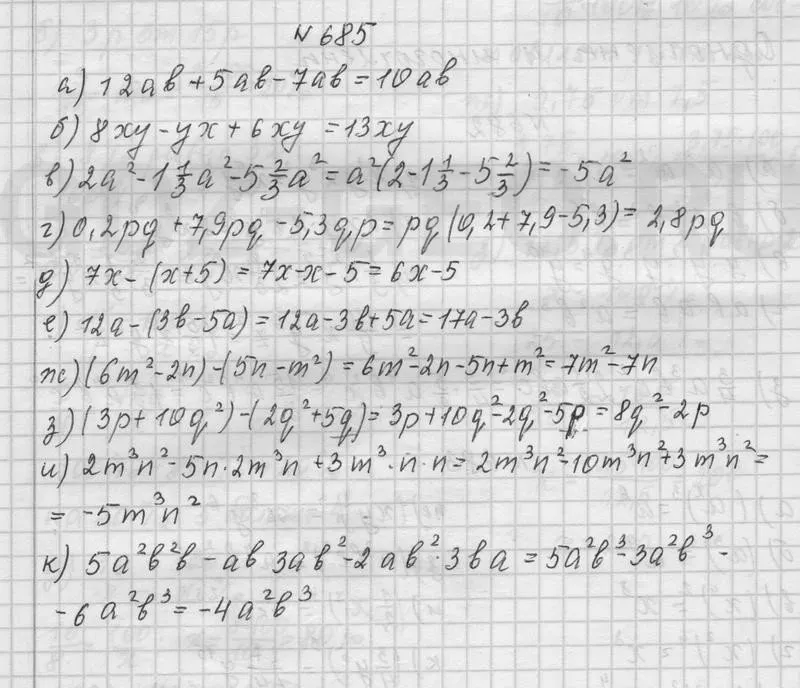 № 685
а) 12ab + 5ab - 7ab = 10ab
б) 8xy - yx + 6xy = 13xy
в) 2a² - 1 1/3 a² - 5 2/3 a² = a² (2 - 1 1/3 - 5 2/3) = -5a²
г) 0,2pq + 7,9pq - 5,3qp = pq (0,2 + 7,9 - 5,3) = 2,8pq
д) 7x - (x + 5) = 7x - x - 5 = 6x - 5
е) 12a - (3b - 5a) = 12a - 3b + 5a = 17a - 3b
ж) (6m² - 2n) - (5n - m²) = 6m² - 2n - 5n + m² = 7m² - 7n
з) (3p + 10q²) - (2q² + 5q) = 3p + 10q² - 2q² - 5p = 8q² - 2p
и) 2m³n² - 5n · 2m³n + 3m³ · n · n = 2m³n² - 10m³n² + 3m³n² =
= -5m³n²
к) 5a²b²b - ab 3ab² - 2ab² · 3ba = 5a²b³ - 3a²b³ -
- 6a²b³ = -4a²b³